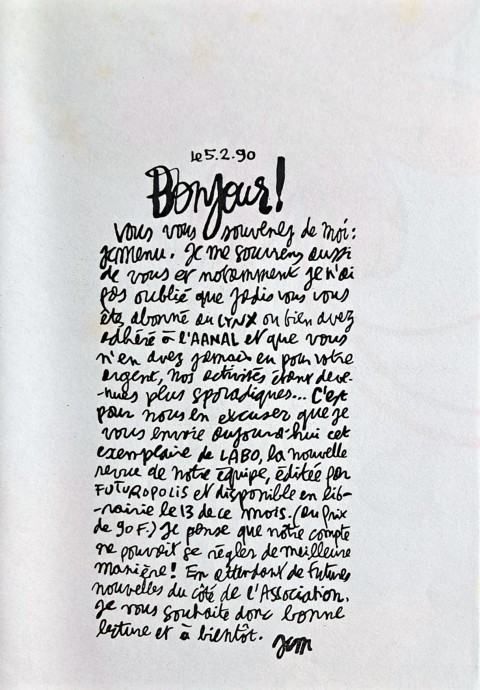 le 5.2.90
Bonjour!
Vous vous souvenez de moi:
jcMenu. Je me souviens aussi
de vous et notamment je n'ai
pas oublié que jadis vous vous
êtes abonné au LYNX ou bien avez
adhéré à l'AANAL et que vous
n'en avez jamais eu pour votre
argent, nos activités étant deve-
-nues plus sporadiques... C'est
pour nous en excuser que je
vous envoie aujourd'hui cet
exemplaire de LABO, la nouvelle
revue de notre équipe, éditée par
FUTUROPOLIS et disponible en lib-
-rairie le 13 de ce mois. (au prix
de 90 F.) Je pense que notre compte
ne pouvait se régler de meilleure
manière! En attendant de futures
nouvelles du côté de l'Association,
je vous souhaite donc bonne
lecture et à bientôt.